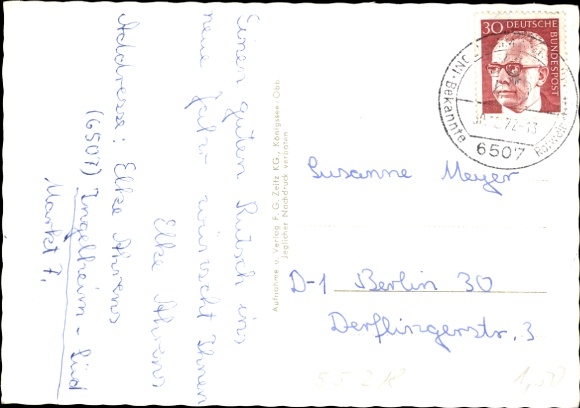 Einen guten Rutsch ins
neue Jahr wünscht Ihnen
Elke Ahrens
Addresse: Elke Ahrens
(6507) Ingelheim-Süd
Markt 7,
Aufnahme u. Verlag F. G. Zeitz KG., Königssee/Obb.
Jeglicher Nachdruck verboten
30 DEUTSCHE
BUNDESPOST
Bekannte
6507
Susanne Meyer
D-1 Berlin 30
Derflingerstr. 3
1,50